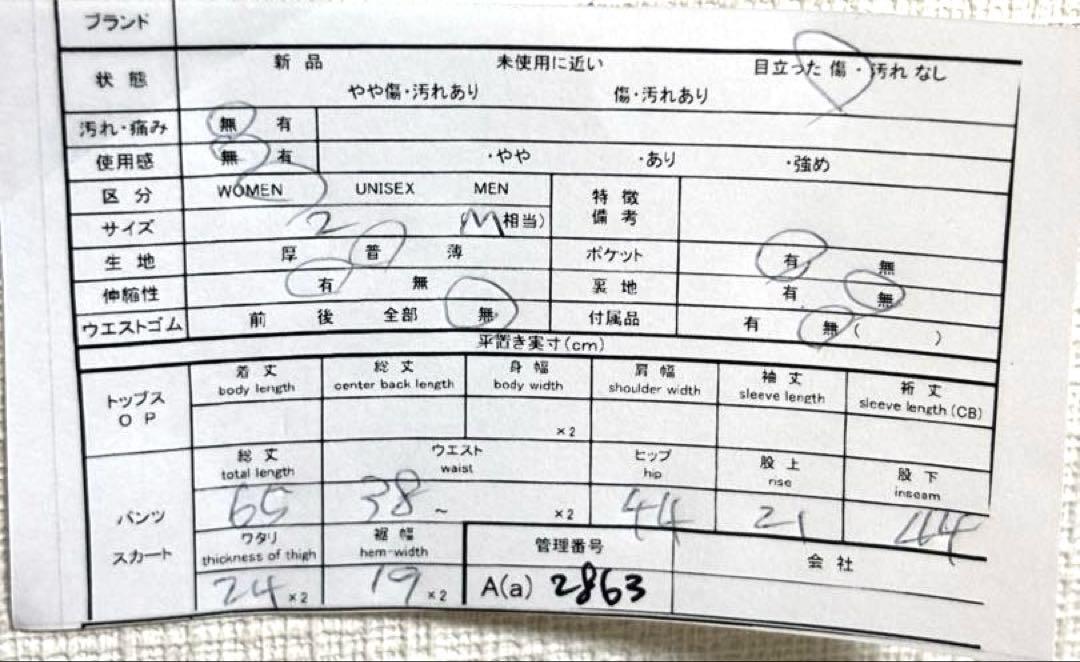 ブランド
状態 新品 未使用に近い 目立った傷・汚れなし
やや傷・汚れあり 傷・汚れあり
汚れ・痛み 無 有
使用感 無 有 ・やや ・あり ・強め
区分 WOMEN UNISEX MEN 特徴
備考
サイズ 2 (M相当)
生地 厚 普 薄 ポケット 有 無
伸縮性 有 無 裏地 有 無
ウエストゴム 前 後 全部 無 付属品 有 無 ( )
平置き実寸(cm)
トップス
OP
着丈 総丈 身幅 肩幅 袖丈 裄丈
body length center back length body width shoulder width sleeve length sleeve length (CB)
×2
パンツ
スカート
総丈 ウエスト ヒップ 股上 股下
total length waist hip rise inseam
65 38 ~ ×2 44 21 44
ワタリ 裾幅 管理番号 会社
thickness of thigh hem-width
24 ×2 19 ×2 A(a) 2863